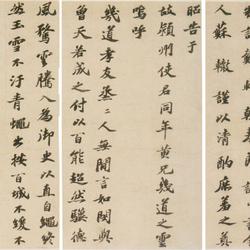 人蘇轍謹以清酌庶羞之奠
昭告于
故潁州使君同年黃兄幾道之靈
嗚呼
幾道孝友烝二人無閒言如閔與
曾天若成之付以百能超然驥德
風騖雲騰入為御史以直自繩身
為玉雪不汙青蠅出按百城不緩不